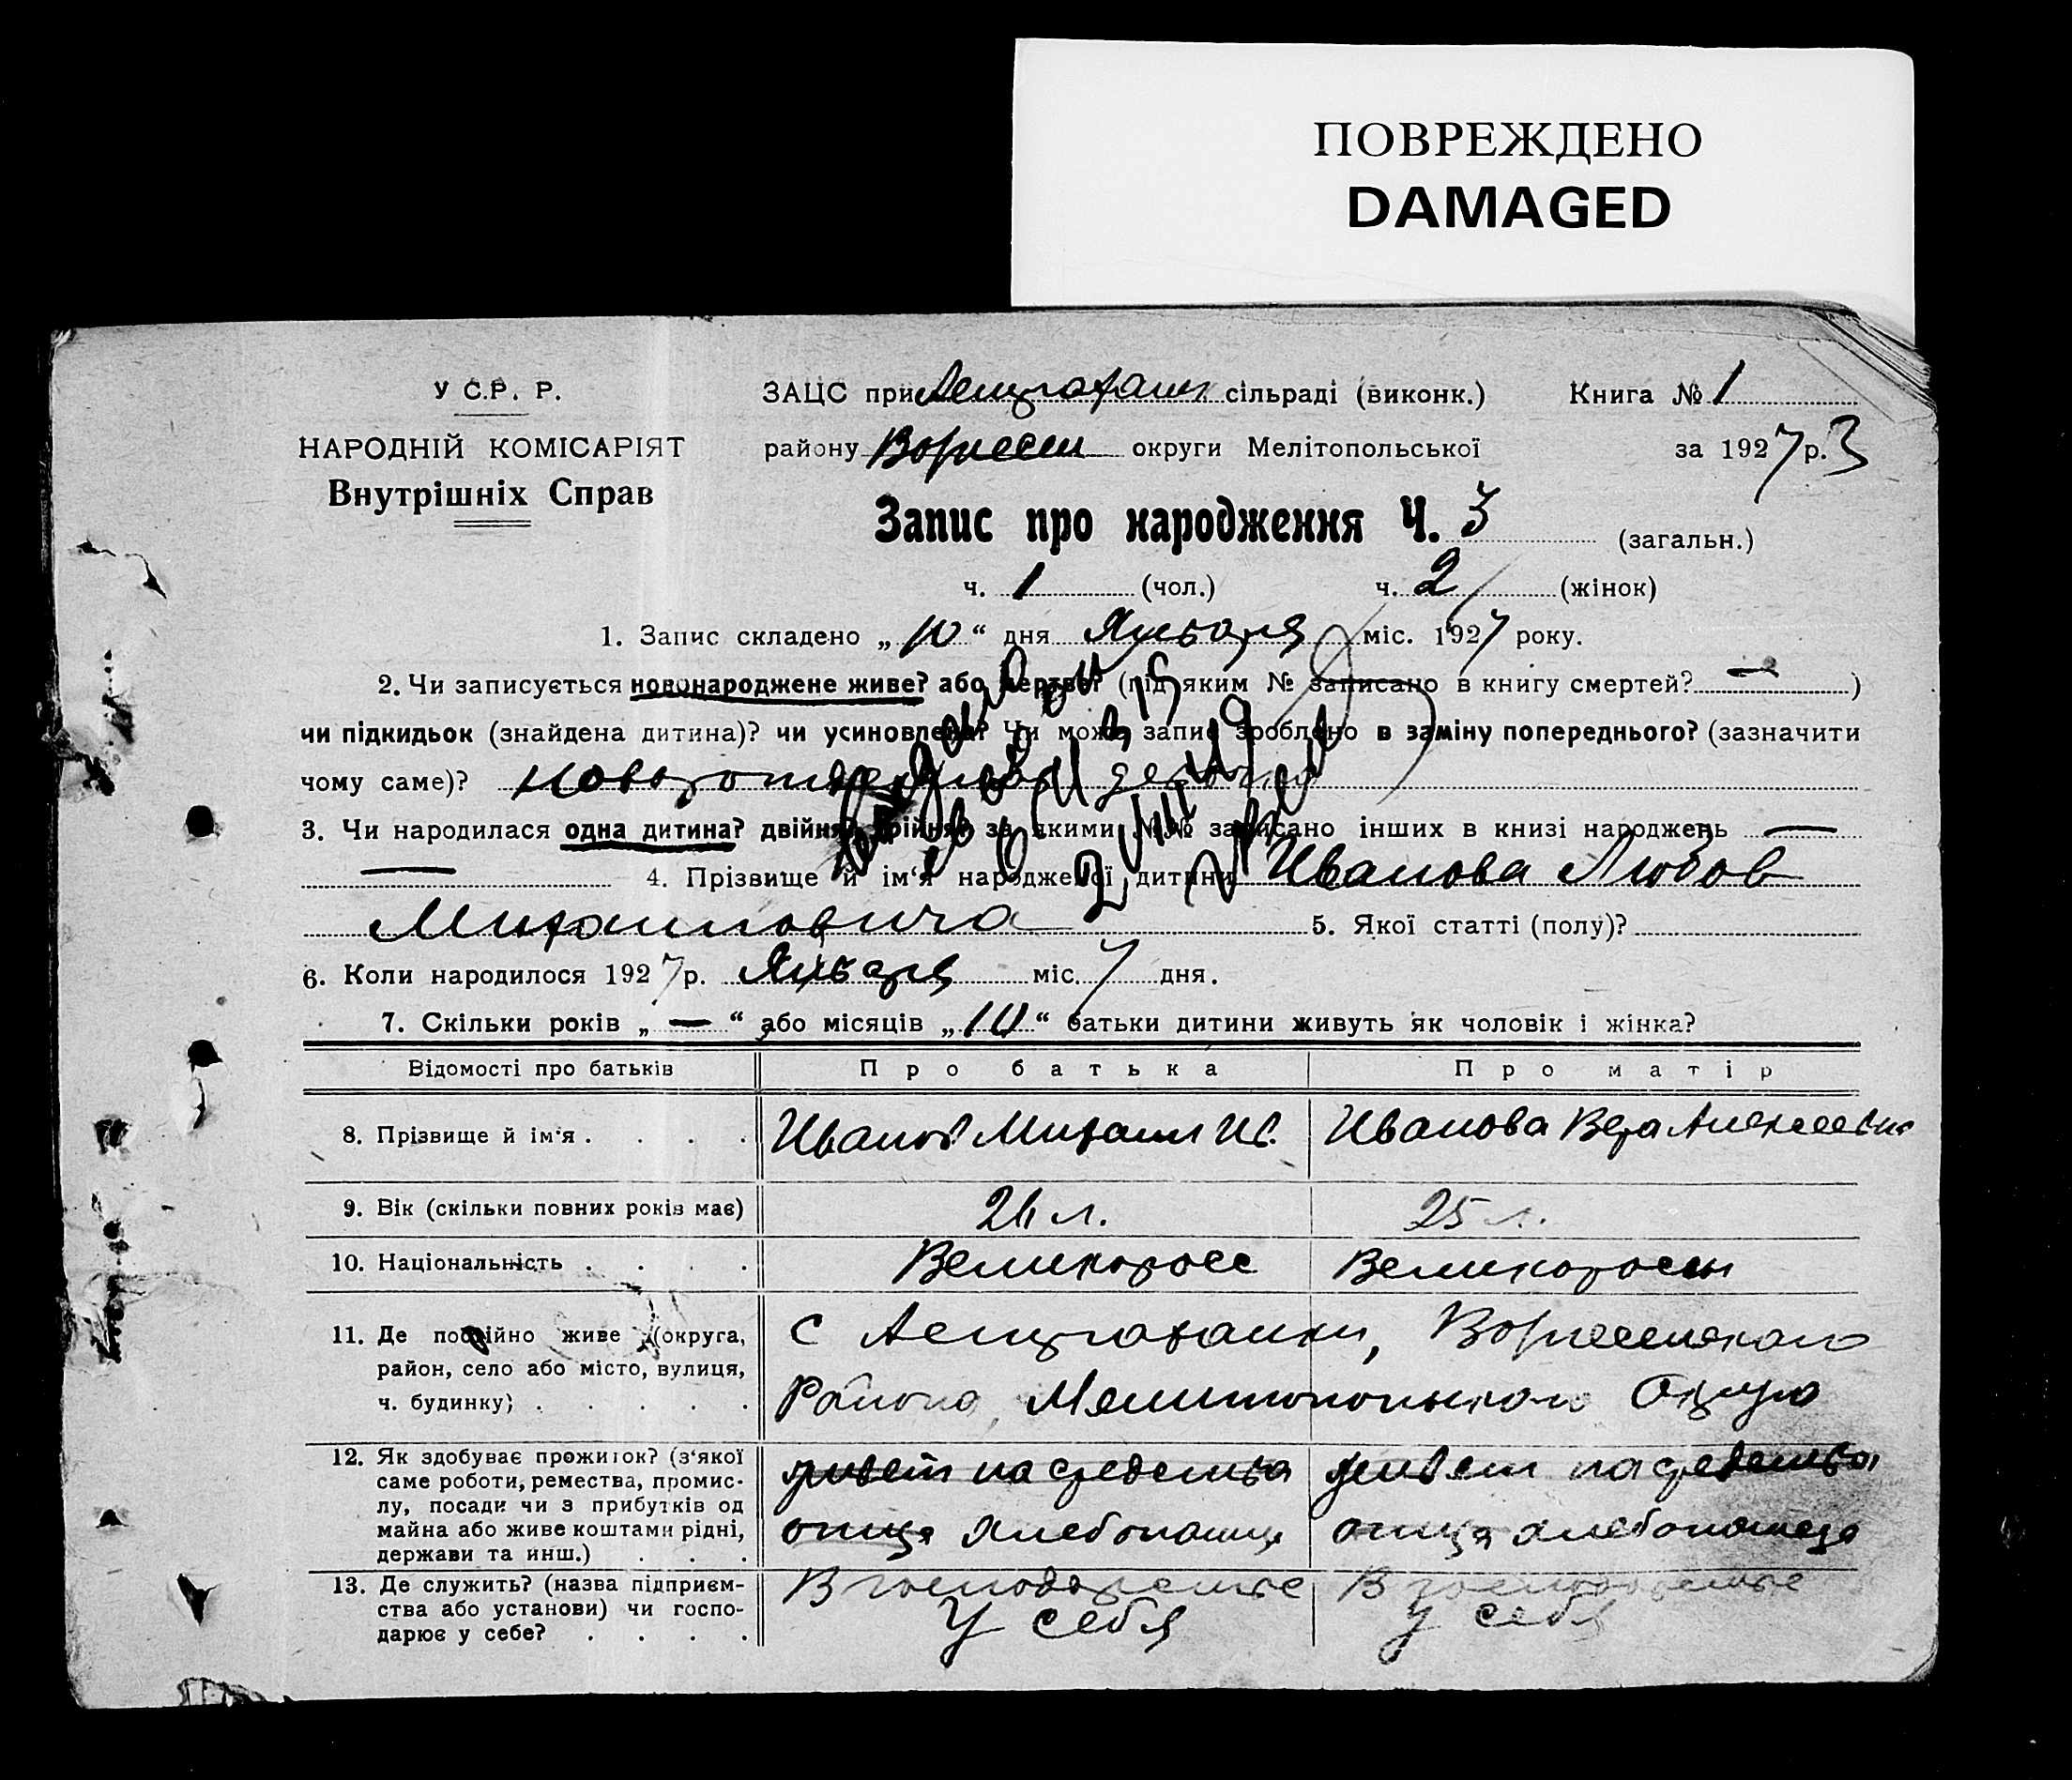 ПОВРЕЖДЕНО
DAMAGED
У С.Р.Р.
ЗАЦС при сільраді (виконк.) Книга № 1
НАРОДНІЙ КОМІСАРІЯТ
району округи Мелітопольської за 1927 р. 3
Внутрішніх Справ
Запис про народження Ч. 3 (загальн.)
ч. 1 (чол.) ч. 2 (жінок)
1. Запис складено „10“ дня Января міс. 1927 року.
2. Чи записується новонароджене живе? або мертве? (під яким № записано в книгу смертей? — )
чи підкидьок (знайдена дитина)? чи усиновлена? Чи може запис зроблено в заміну попереднього? (зазначити
чому саме)?
3. Чи народилася одна дитина? двійня? трійня? за якими №№ записано інших в книзі народжень —
— 4. Прізвище й ім‘я народженої дитини Иванова Любов
Михаиловича 5. Якої статті (полу)?
6. Коли народилося 1927 р. Января міс. 7 дня.
7. Скільки років „ — “ або місяців „10“ батьки дитини живуть як чоловік і жінка?
Відомості про батьків Про батька Про матір
8. Прізвище й ім‘я . . . . Иванов Михаил Ив. Иванова Вера Алексеевна
9. Вік (скільки повних років має) л. 25 л.
10. Національність . . . . Великоросс Великороссы
11. Де постійно живе (округа, с
район, село або місто, вулиця,
ч. будинку) . . . . . Района, Мелитопольского Округа
12. Як здобуває прожиток? (з‘якої живет на средства живет на средства
саме роботи, ремества, промис-
лу, посади чи з прибутків од
майна або живе коштами рідні, отца хлебопашца отца хлебопашеца
держави та инш.) . . .
13. Де служить? (назва підприєм- В господарстве В господарстве
ства або установи) чи госпо- у себя у себя
дарює у себе? . . . .